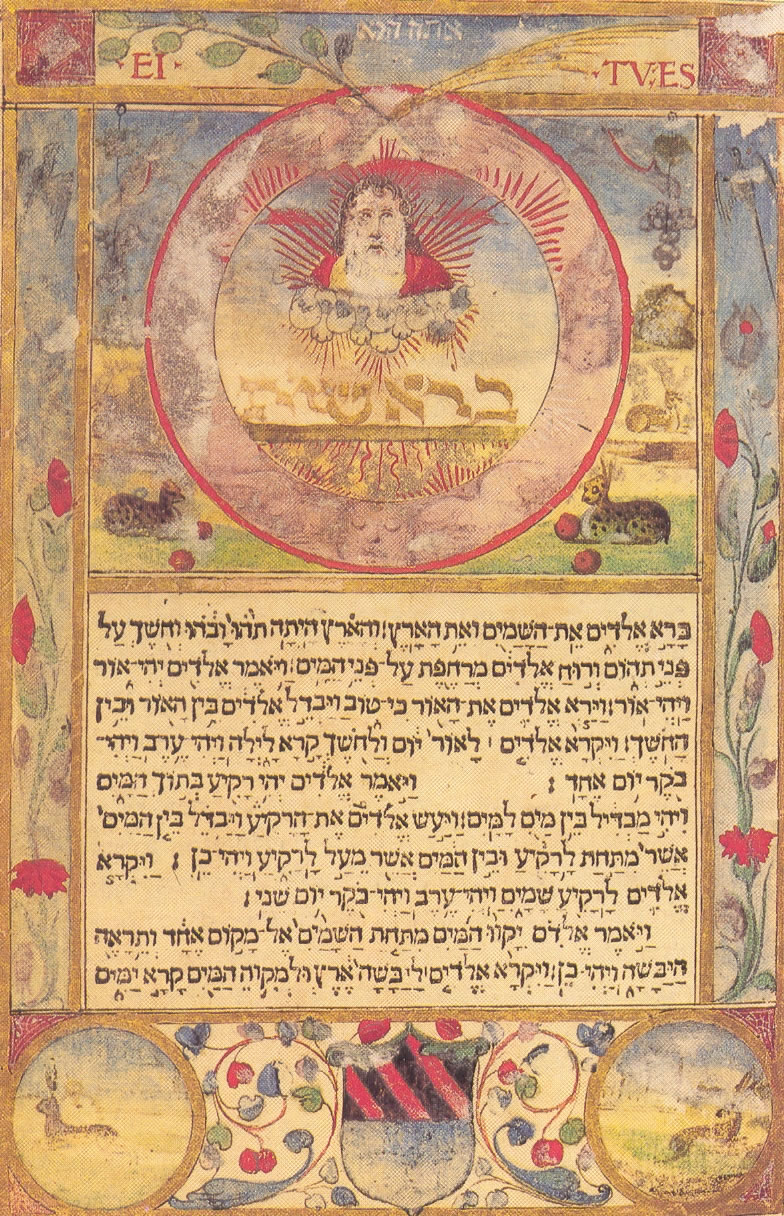 אתה הוא
·EI· ·TV:ES
בראשית
ברא אלדים את־השמים ואת הארץ׃ והארץ היתה תהו ובהו וחשך על
פני תהום ורוח אלדים מרחפת על־פני המים׃ ויאמר אלדים יהי־אור
ויהי־אור׃ וירא אלדים את־האור כי־טוב ויבדל אלדים בין האור ובין
החשך׃ ויקרא אלדים ׀ לאור יום ולחשך קרא לילה ויהי־ערב ויהי־
בקר יום אחד׃ ויאמר אלדים יהי רקיע בתוך המים
ויהי מבדיל בין מים למים׃ ויעש אלדים את־הרקיע ויבדל בין המים
אשר מתחת לרקיע ובין המים אשר מעל לרקיע ויהי־כן׃ ויקרא
אלדים לרקיע שמים ויהי־ערב ויהי־בקר יום שני׃
ויאמר אלדים יקוו המים מתחת השמים אל־מקום אחד ותראה
היבשה ויהי־כן׃ ויקרא אלדים ליבשה ארץ ולמקוה המים קרא ימים